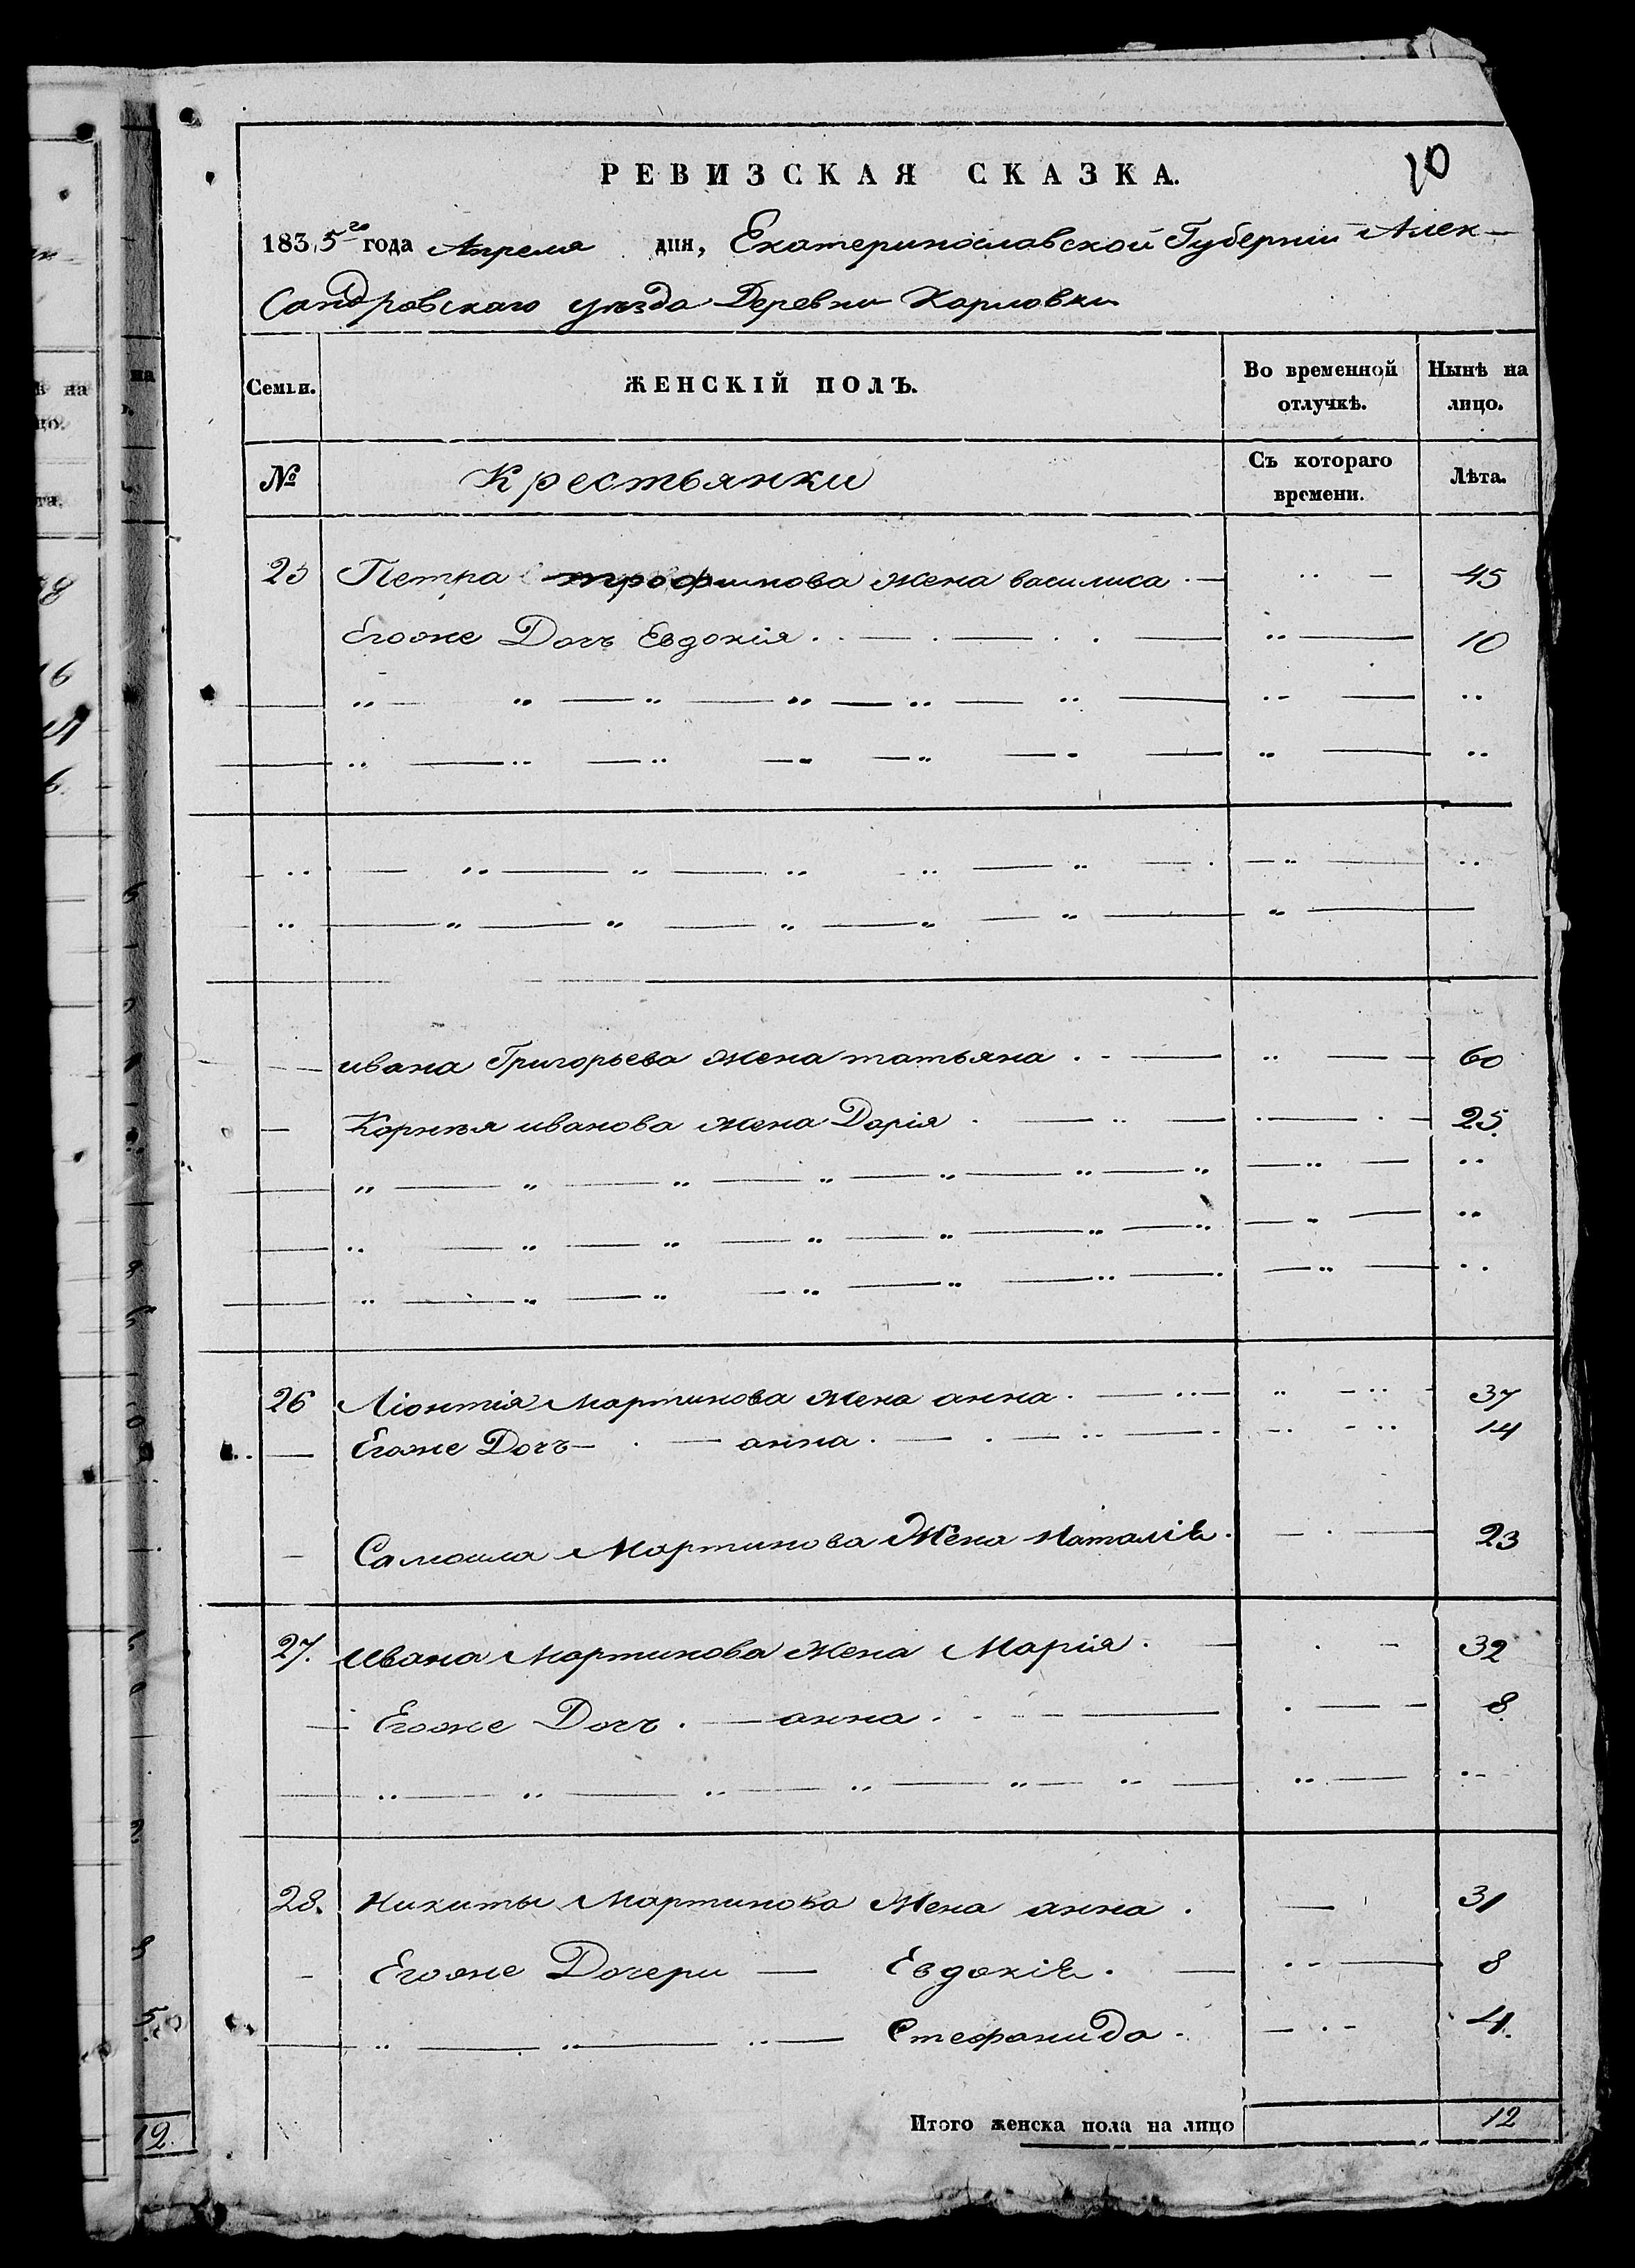 10
РЕВИЗСКАЯ СКАЗКА.
1835го года Апреля дня, Екатеринославской Губернiи Алек-
Сандровскаго уезда Деревни Карловки
Семьи. ЖЕНСКІЙ ПОЛЪ. Во временной отлучкѣ. Нынѣ на лицо.
№ Крестьянки Съ котораго времени. Лѣта.
25 Петра трофимова жена василиса 45
Егоже Дочь Евдокія 10
ивана Григорьева жена татьяна 60
Корнея иванова жена Дарія 25.
26 Ліонтія Мартинова жена анна 37
Егоже Дочь анна 14
Самоила Мартинова Жена Наталія 23
27. Ивана Мартинова жена Марія 32
Егоже Дочь анна 8
28. Никиты Мартинова Жена анна 31
Егоже Дочери Евдокія 8
Стефанида 4.
Итого женска пола на лицо 12
12.